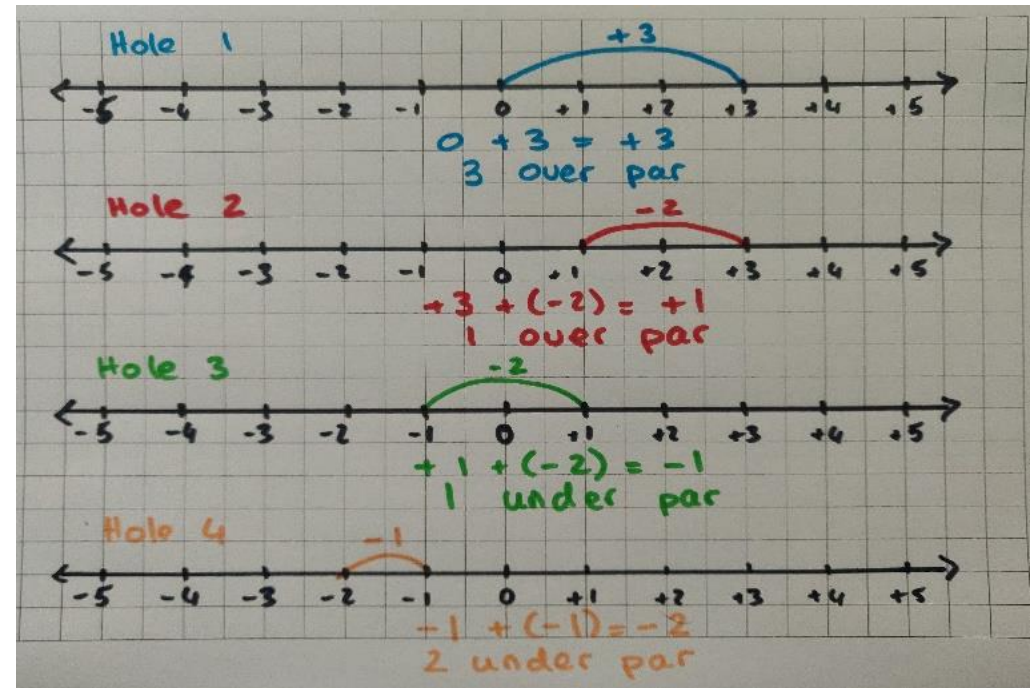 Hole 1
+3
-5 -4 -3 -2 -1 0 +1 +2 +3 +4 +5
0 + 3 = +3
3 over par
Hole 2
-2
-5 -4 -3 -2 -1 0 +1 +2 +3 +4 +5
+3 + (-2) = +1
1 over par
Hole 3
-2
-5 -4 -3 -2 -1 0 +1 +2 +3 +4 +5
+1 + (-2) = -1
1 under par
Hole 4
-1
-5 -4 -3 -2 -1 0 +1 +2 +3 +4 +5
-1 + (-1) = -2
2 under par